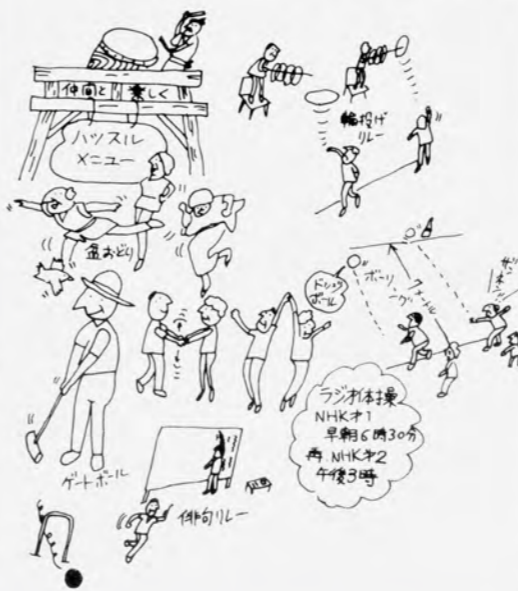 仲間と楽しく
ハッスル
メニュー
輪投げ
リレー
盆おどり
ドッジ
ボール
ボーリング
ラジオ体操
NHKオ1
早朝6時30分
再.NHKオ2
午後3時
ゲートボール
俳句リレー